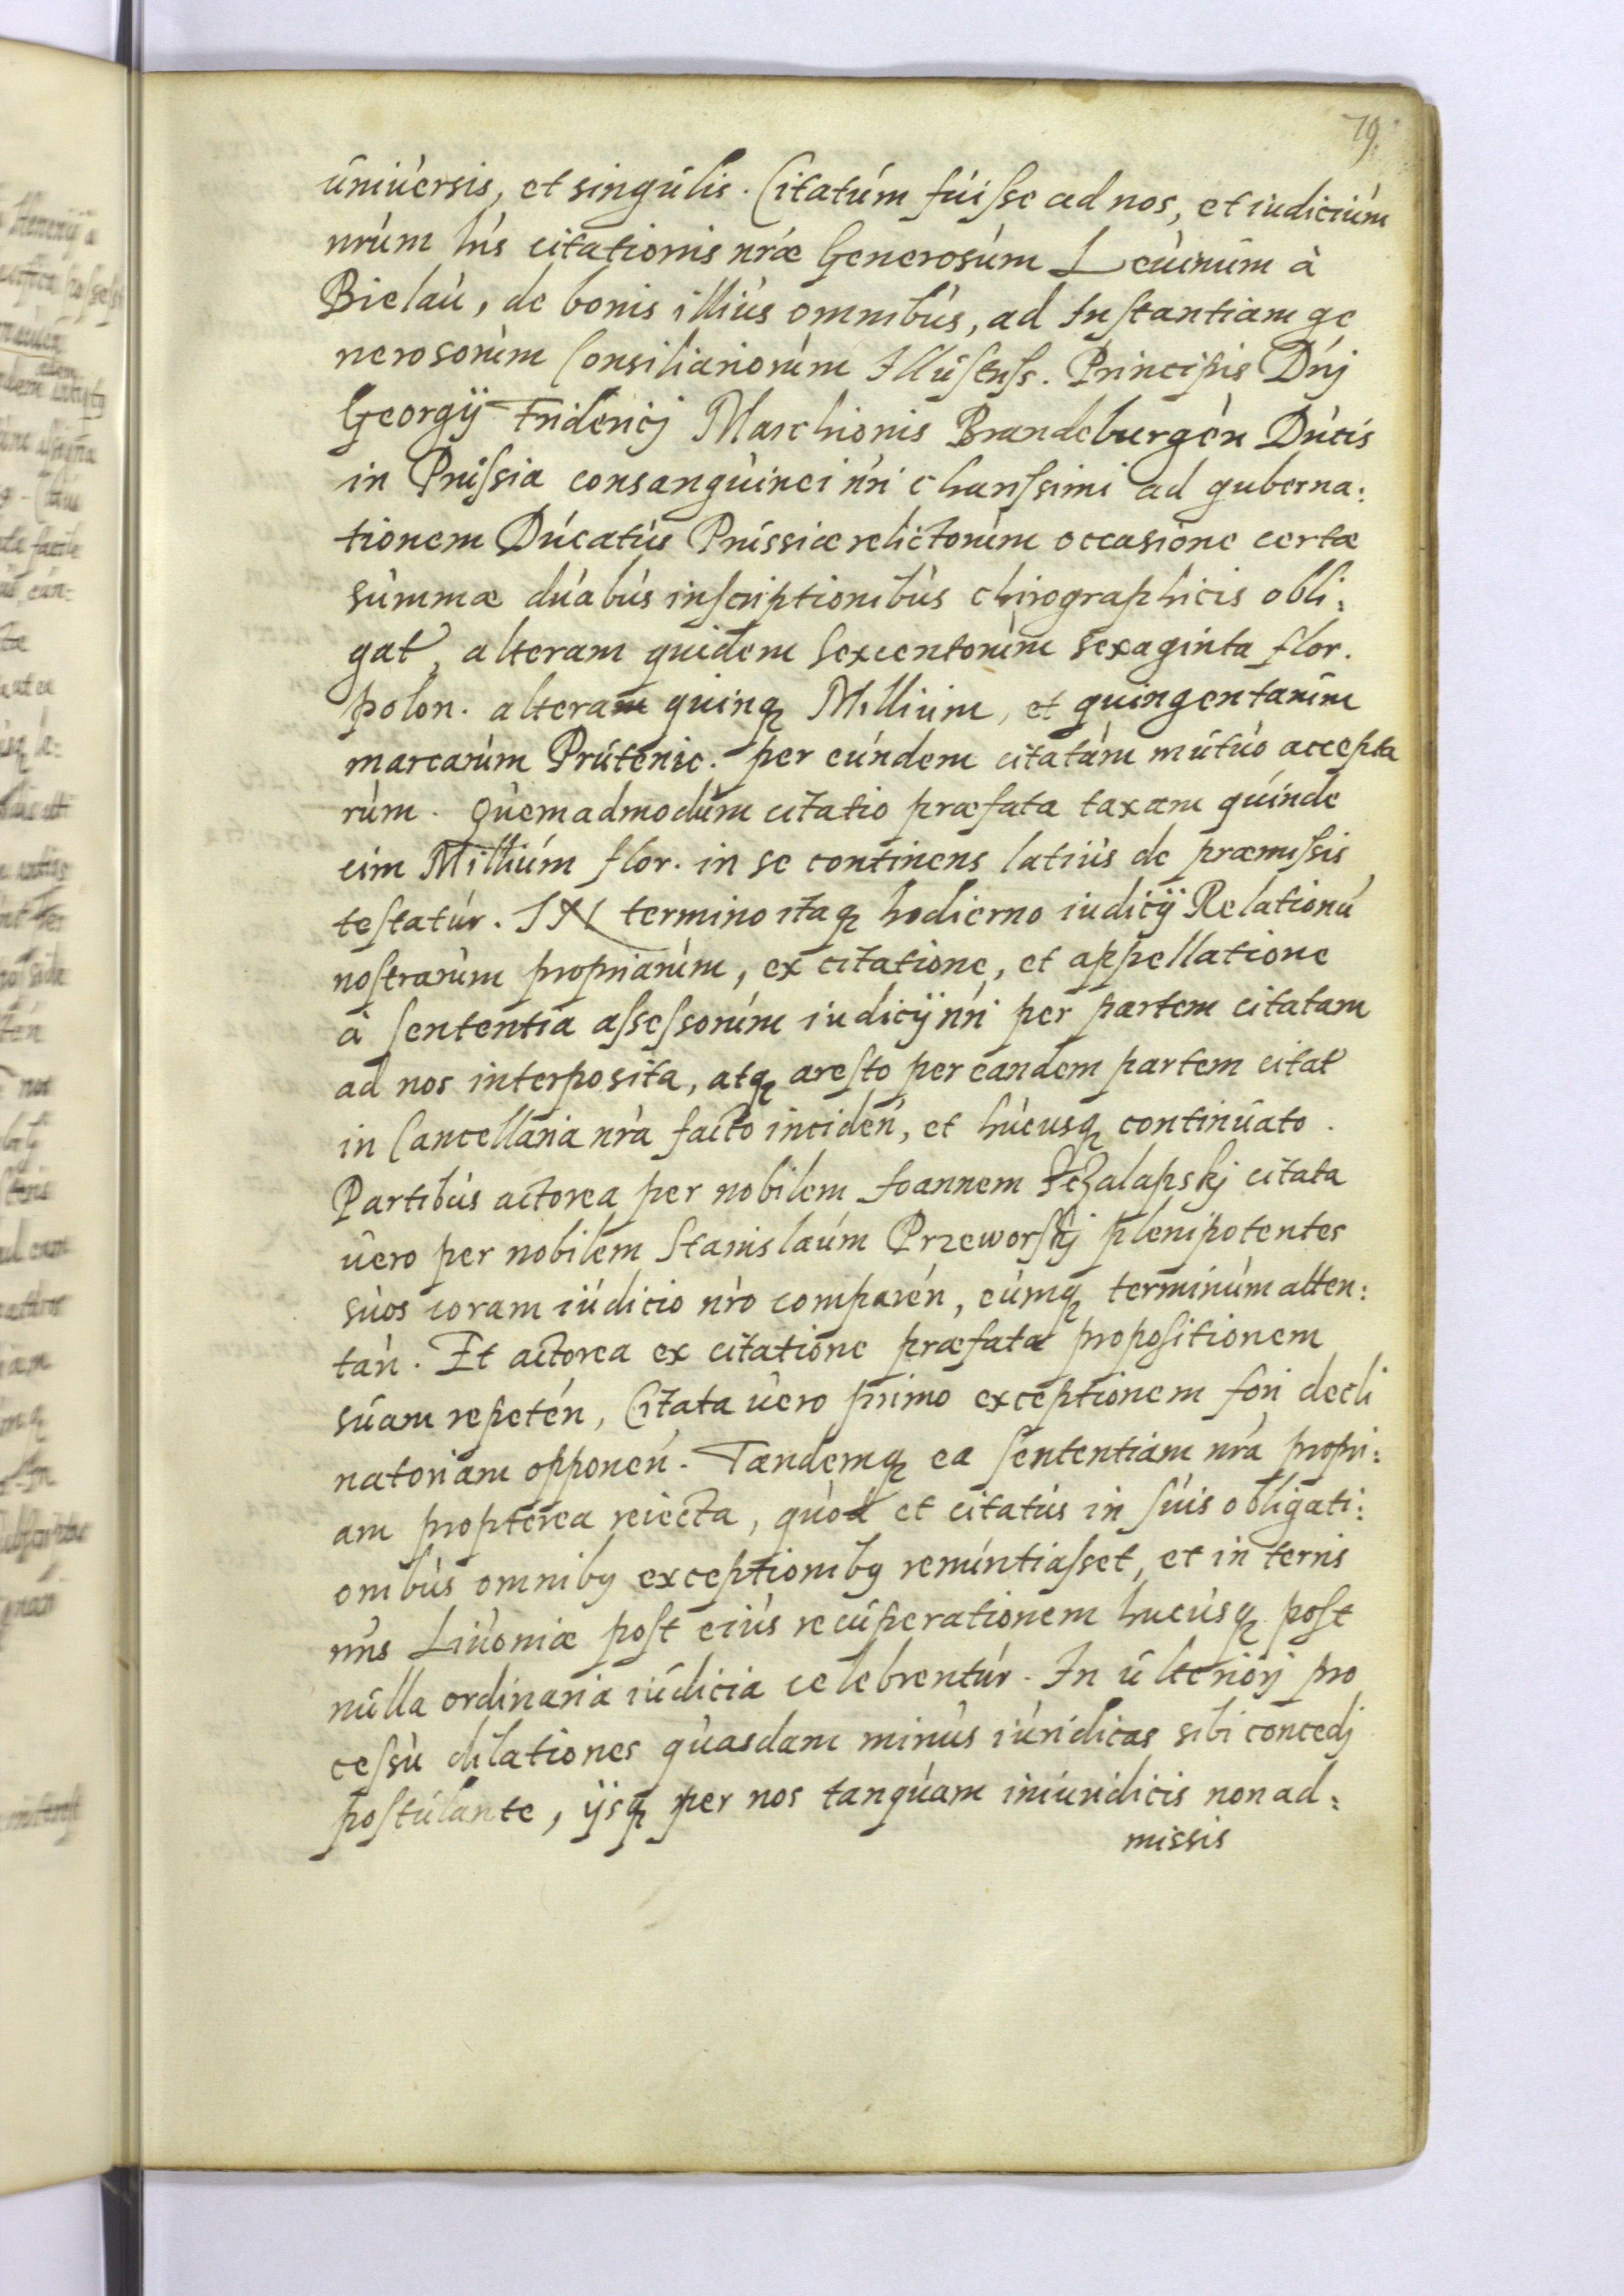 79.
universis, et singulis. Citatum fuisse ad nos, et iudicium
nrum lris citationis nræ Generosum Levinum à
Bielau, de bonis illius omnibus, ad Instantiam ge
nerosorum Consiliariorum Illustriss. Principis Dnj
Georgij Fridericj Marchionis Brandeburgen Ducis
in Prussia consanguinei nri charissimi ad guberna:
tionem Ducatus Prussiæ relictorum occasione certæ
summæ duabus inscriptionibus chirographicis obli:
gat, alteram quidem sexcentorum sexaginta flor.
polon. alteram quinq Millium, et quingentarum
marcarum Prutenic. per eundem citatum mutuo accepta
rum. Quemadmodum citatio præfata taxam quinde
cim Millium flor. in se continens latius de præmissis
testatur. IN termino itaq hodierno iudicij Relationu
nostrarum propriarum, ex citatione, et appellatione
à sententia assessorum iudicij nri per partem citatam
ad nos interposita, atq aresto per eandem partem citat
in Cancellaria nra facto inciden, et hucusq continuato.
Partibus actorea per nobilem Joannem citata
vero per nobilem Stanislaum Przeworskj plenipotentes
suos coram iudicio nro comparen, eumq terminum atten:
tan. Et actorea ex citatione præfata propositionem
suam repeten, Citata vero primo exceptionem fori decli
natoriam opponen. Tandemq ea sententiam nra propri:
am propterea reiecta, quod et citatus in suis obligati:
onibus omnibq exceptionibq renuntiasset, et in terris
nris Livoniæ post eius recuperationem hucusq post
nulla ordinaria iudicia celebrentur. In ulteriorj pro
cessu dilationes quasdam minus iuridicas sibi concedj
postulante, ijsq per nos tanquam iniuridicis non ad:
missis